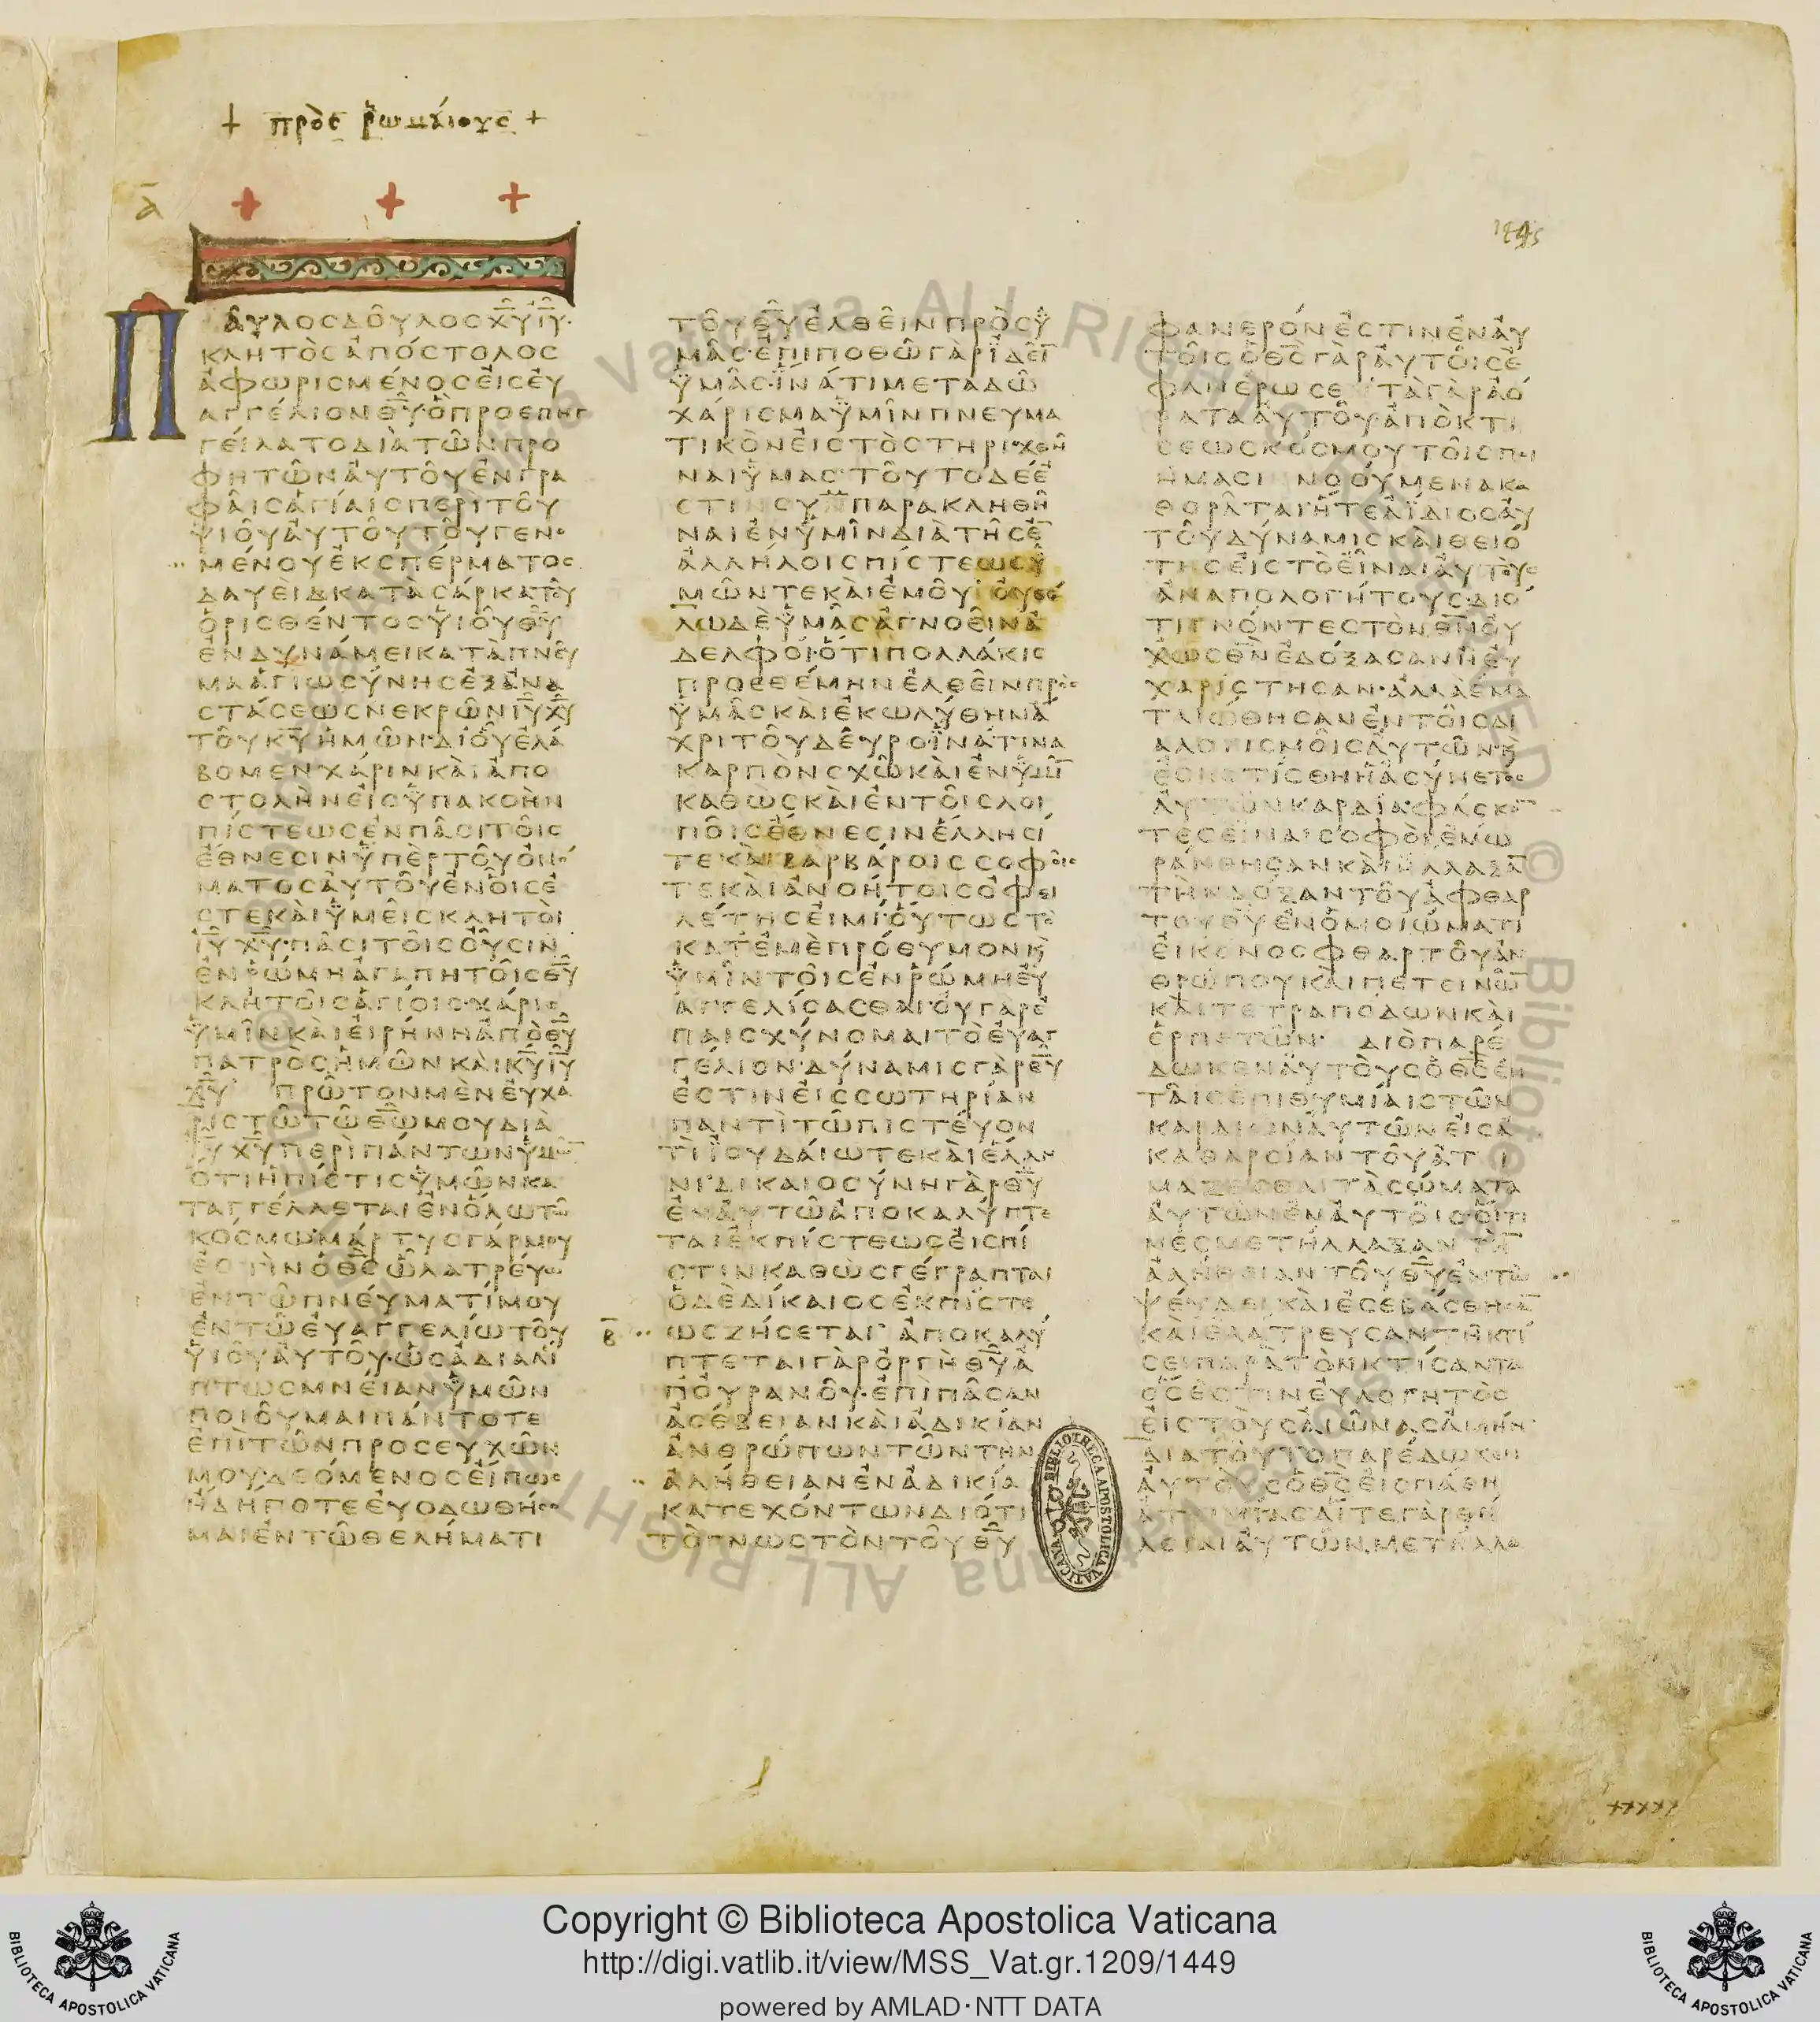 + πρὸς ῥωμαίους +
Α
+ + +
1445
ΠΑΥΛΟϹΔΟΥΛΟϹΧ̅Υ̅Ι̅Υ̅·
ΚΛΗΤΟϹΑΠΟϹΤΟΛΟϹ
ΑΦΩΡΙϹΜΕΝΟϹΕΙϹΕΥ
ΑΓΓΕΛΙΟΝΘ̅Υ̅ΟΠΡΟΕΠΗΓ
ΓΕΙΛΑΤΟΔΙΑΤΩΝΠΡΟ
ΦΗΤΩΝΑΥΤΟΥΕΝΓΡΑ
ΦΑΙϹΑΓΙΑΙϹΠΕΡΙΤΟΥ
ΥΙΟΥΑΥΤΟΥΤΟΥΓΕΝΟ
ΜΕΝΟΥΕΚϹΠΕΡΜΑΤΟϹ
ΔΑΥΕΙΔΚΑΤΑϹΑΡΚΑΤΟΥ
ΟΡΙϹΘΕΝΤΟϹΥΙΟΥΘ̅Υ̅
ΕΝΔΥΝΑΜΕΙΚΑΤΑΠΝΕΥ
ΜΑΑΓΙΩϹΥΝΗϹΕΞΑΝΑ
ϹΤΑϹΕΩϹΝΕΚΡΩΝΙ̅Υ̅Χ̅Υ̅
ΤΟΥΚ̅Υ̅ΗΜΩΝ·ΔΙΟΥΕΛΑ
ΒΟΜΕΝΧΑΡΙΝΚΑΙΑΠΟ
ϹΤΟΛΗΝΕΙϹΥΠΑΚΟΗΝ
ΠΙϹΤΕΩϹΕΝΠΑϹΙΤΟΙϹ
ΕΘΝΕϹΙΝΥΠΕΡΤΟΥΟΝΟ
ΜΑΤΟϹΑΥΤΟΥΕΝΟΙϹΕ
ϹΤΕΚΑΙΥΜΕΙϹΚΛΗΤΟΙ
Ι̅Υ̅Χ̅Υ̅·ΠΑϹΙΤΟΙϹΟΥϹΙΝ
ΕΝΡΩΜΗΑΓΑΠΗΤΟΙϹΘ̅Υ̅
ΚΛΗΤΟΙϹΑΓΙΟΙϹ·ΧΑΡΙϹ
ΥΜΙΝΚΑΙΕΙΡΗΝΗΑΠΟΘ̅Υ̅
ΠΑΤΡΟϹΗΜΩΝΚΑΙΚ̅Υ̅Ι̅Υ̅
Χ̅Υ̅ ΠΡΩΤΟΝΜΕΝΕΥΧΑ
ΡΙϹΤΩΤΩΘ̅Ω̅ΜΟΥΔΙΑ
Ι̅Υ̅Χ̅Υ̅ΠΕΡΙΠΑΝΤΩΝΥΜΩ̅
ΟΤΙΗΠΙϹΤΙϹΥΜΩΝΚΑ
ΤΑΓΓΕΛΛΕΤΑΙΕΝΟΛΩΤΩ
ΚΟϹΜΩΜΑΡΤΥϹΓΑΡΜΟΥ
ΕϹΤΙΝΟΘ̅Ϲ̅ΩΛΑΤΡΕΥΩ
ΕΝΤΩΠΝΕΥΜΑΤΙΜΟΥ
ΕΝΤΩΕΥΑΓΓΕΛΙΩΤΟΥ
ΥΙΟΥΑΥΤΟΥ·ΩϹΑΔΙΑΛΙ
ΠΤΩϹΜΝΕΙΑΝΥΜΩΝ
ΠΟΙΟΥΜΑΙΠΑΝΤΟΤΕ
ΕΠΙΤΩΝΠΡΟϹΕΥΧΩΝ
ΜΟΥΔΕΟΜΕΝΟϹΕΙΠΩϹ
ΗΔΗΠΟΤΕΕΥΟΔΩΘΗϹΟ
ΜΑΙΕΝΤΩΘΕΛΗΜΑΤΙ
ΤΟΥΘ̅Υ̅ΕΛΘΕΙΝΠΡΟϹΥ
ΜΑϹ·ΕΠΙΠΟΘΩΓΑΡΙΔΕΙ̅
ΥΜΑϹ·ΙΝΑΤΙΜΕΤΑΔΩ
ΧΑΡΙϹΜΑΥΜΙΝΠΝΕΥΜΑ
ΤΙΚΟΝΕΙϹΤΟϹΤΗΡΙΧΘΗ
ΝΑΙΥΜΑϹ·ΤΟΥΤΟΔΕΕ
ϹΤΙΝϹΥΜΠΑΡΑΚΛΗΘΗ
ΝΑΙΕΝΥΜΙΝΔΙΑΤΗϹΕ̅
ΑΛΛΗΛΟΙϹΠΙϹΤΕΩϹΥ
ΜΩΝΤΕΚΑΙΕΜΟΥ·ΟΥΘΕ
ΛΩΔΕΥΜΑϹΑΓΝΟΕΙΝΑ
ΔΕΛΦΟΙ·ΟΤΙΠΟΛΛΑΚΙϹ
ΠΡΟΕΘΕΜΗΝΕΛΘΕΙΝΠΡΟϹ
ΥΜΑϹΚΑΙΕΚΩΛΥΘΗΝΑ
ΧΡΙΤΟΥΔΕΥΡΟΙΝΑΤΙΝΑ
ΚΑΡΠΟΝϹΧΩΚΑΙΕΝΥΜΙ̅
ΚΑΘΩϹΚΑΙΕΝΤΟΙϹΛΟΙ
ΠΟΙϹΕΘΝΕϹΙΝΕΛΛΗϹΙ
ΤΕΚΑΙΒΑΡΒΑΡΟΙϹϹΟΦΟΙϹ
ΤΕΚΑΙΑΝΟΗΤΟΙϹΟΦΕΙ
ΛΕΤΗϹΕΙΜΙ·ΟΥΤΩϹΤΟ
ΚΑΤΕΜΕΠΡΟΘΥΜΟΝϏ
ΥΜΙΝΤΟΙϹΕΝΡΩΜΗΕΥ
ΑΓΓΕΛΙϹΑϹΘΑΙ·ΟΥΓΑΡΕ
ΠΑΙϹΧΥΝΟΜΑΙΤΟΕΥΑΓ
ΓΕΛΙΟΝ·ΔΥΝΑΜΙϹΓΑΡΘ̅Υ̅
ΕϹΤΙΝΕΙϹϹΩΤΗΡΙΑΝ
ΠΑΝΤΙΤΩΠΙϹΤΕΥΟΝ
ΤΙΙΟΥΔΑΙΩΤΕΚΑΙΕΛΛΗ
ΝΙ·ΔΙΚΑΙΟϹΥΝΗΓΑΡΘ̅Υ̅
ΕΝΑΥΤΩΑΠΟΚΑΛΥΠΤΕ
ΤΑΙΕΚΠΙϹΤΕΩϹΕΙϹΠΙ
ϹΤΙΝΚΑΘΩϹΓΕΓΡΑΠΤΑΙ
ΟΔΕΔΙΚΑΙΟϹΕΚΠΙϹΤΕ
Β ΩϹΖΗϹΕΤΑΙ· ΑΠΟΚΑΛΥ
ΠΤΕΤΑΙΓΑΡΟΡΓΗΘ̅Υ̅Α
ΠΟΥΡΑΝΟΥ·ΕΠΙΠΑϹΑΝ
ΑϹΕΒΕΙΑΝΚΑΙΑΔΙΚΙΑΝ
ΑΝΘΡΩΠΩΝΤΩΝΤΗΝ
ΑΛΗΘΕΙΑΝΕΝΑΔΙΚΙΑ
ΚΑΤΕΧΟΝΤΩΝΔΙΟΤΙ
ΤΟΓΝΩϹΤΟΝΤΟΥΘ̅Υ̅
ΦΑΝΕΡΟΝΕϹΤΙΝΕΝΑΥ
ΤΟΙϹΟΘ̅Ϲ̅ΓΑΡΑΥΤΟΙϹΕ
ΦΑΝΕΡΩϹΕ ΤΑΓΑΡΑΟ
ΡΑΤΑΑΥΤΟΥΑΠΟΚΤΙ
ϹΕΩϹΚΟϹΜΟΥΤΟΙϹΠΟΙ
ΗΜΑϹΙ ΝΟΟΥΜΕΝΑΚΑ
ΘΟΡΑΤΑΙΗΤΕΑΙΔΙΟϹΑΥ
ΤΟΥΔΥΝΑΜΙϹΚΑΙΘΕΙΟ
ΤΗϹΕΙϹΤΟΕΙΝΑΙΑΥΤΟΥϹ
ΑΝΑΠΟΛΟΓΗΤΟΥϹ·ΔΙΟ
ΤΙΓΝΟΝΤΕϹΤΟΝΘ̅Ν̅ΟΥ
ΧΩϹΘ̅Ν̅ΕΔΟΞΑϹΑΝΗΕΥ
ΧΑΡΙϹΤΗϹΑΝ·ΑΛΛΑΕΜΑ
ΤΑΙΩΘΗϹΑΝΕΝΤΟΙϹΔΙ
ΑΛΟΓΙϹΜΟΙϹΑΥΤΩΝ·Ϗ
ΕϹΚΟΤΙϹΘΗΗΑϹΥΝΕΤΟϹ
ΑΥΤΩΝΚΑΡΔΙΑ·ΦΑϹΚΟ̅
ΤΕϹΕΙΝΑΙϹΟΦΟΙΕΜΩ
ΡΑΝΘΗϹΑΝΚΑΙΗΛΛΑΞΑ̅
ΤΗΝΔΟΞΑΝΤΟΥΑΦΘΑΡ
ΤΟΥΘ̅Υ̅ΕΝΟΜΟΙΩΜΑΤΙ
ΕΙΚΟΝΟϹΦΘΑΡΤΟΥΑΝ
ΘΡΩΠΟΥΚΑΙΠΕΤΕΙΝΩ̅
ΚΑΙΤΕΤΡΑΠΟΔΩΝΚΑΙ
ΕΡΠΕΤΩΝ· ΔΙΟΠΑΡΕ
ΔΩΚΕΝΑΥΤΟΥϹΟΘ̅Ϲ̅ΕΝ
ΤΑΙϹΕΠΙΘΥΜΙΑΙϹΤΩΝ
ΚΑΡΔΙΩΝΑΥΤΩΝΕΙϹΑ
ΚΑΘΑΡϹΙΑΝΤΟΥΑΤΙ
ΜΑΖΕϹΘΑΙΤΑϹΩΜΑΤΑ
ΑΥΤΩΝΕΝΑΥΤΟΙϹ·ΟΙΤΙ
ΝΕϹΜΕΤΗΛΛΑΞΑΝΤΗ̅
ΑΛΗΘΕΙΑΝΤΟΥΘ̅Υ̅ΕΝΤΩ
ΨΕΥΔΕΙΚΑΙΕϹΕΒΑϹΘΗϹΑ̅
ΚΑΙΕΛΑΤΡΕΥϹΑΝΤΗΚΤΙ
ϹΕΙΠΑΡΑΤΟΝΚΤΙϹΑΝΤΑ
ΟϹΕϹΤΙΝΕΥΛΟΓΗΤΟϹ
ΕΙϹΤΟΥϹΑΙΩΝΑϹΑΜΗΝ·
ΔΙΑΤΟΥΤΟΠΑΡΕΔΩΚΕΝ
ΑΥΤΟΥϹΟΘ̅Ϲ̅ΕΙϹΠΑΘΗ
ΑΤΙΜΙΑϹΑΙΤΕΓΑΡΘΗ
ΛΕΙΑΙΑΥΤΩΝΜΕΤΗΛΛΑ
BIBLIOTHECA APOSTOLICA VATICANA
+++++
Copyright © Biblioteca Apostolica Vaticana
http://digi.vatlib.it/view/MSS_Vat.gr.1209/1449
powered by AMLAD·NTT DATA
BIBLIOTECA APOSTOLICA VATICANA
BIBLIOTECA APOSTOLICA VATICANA